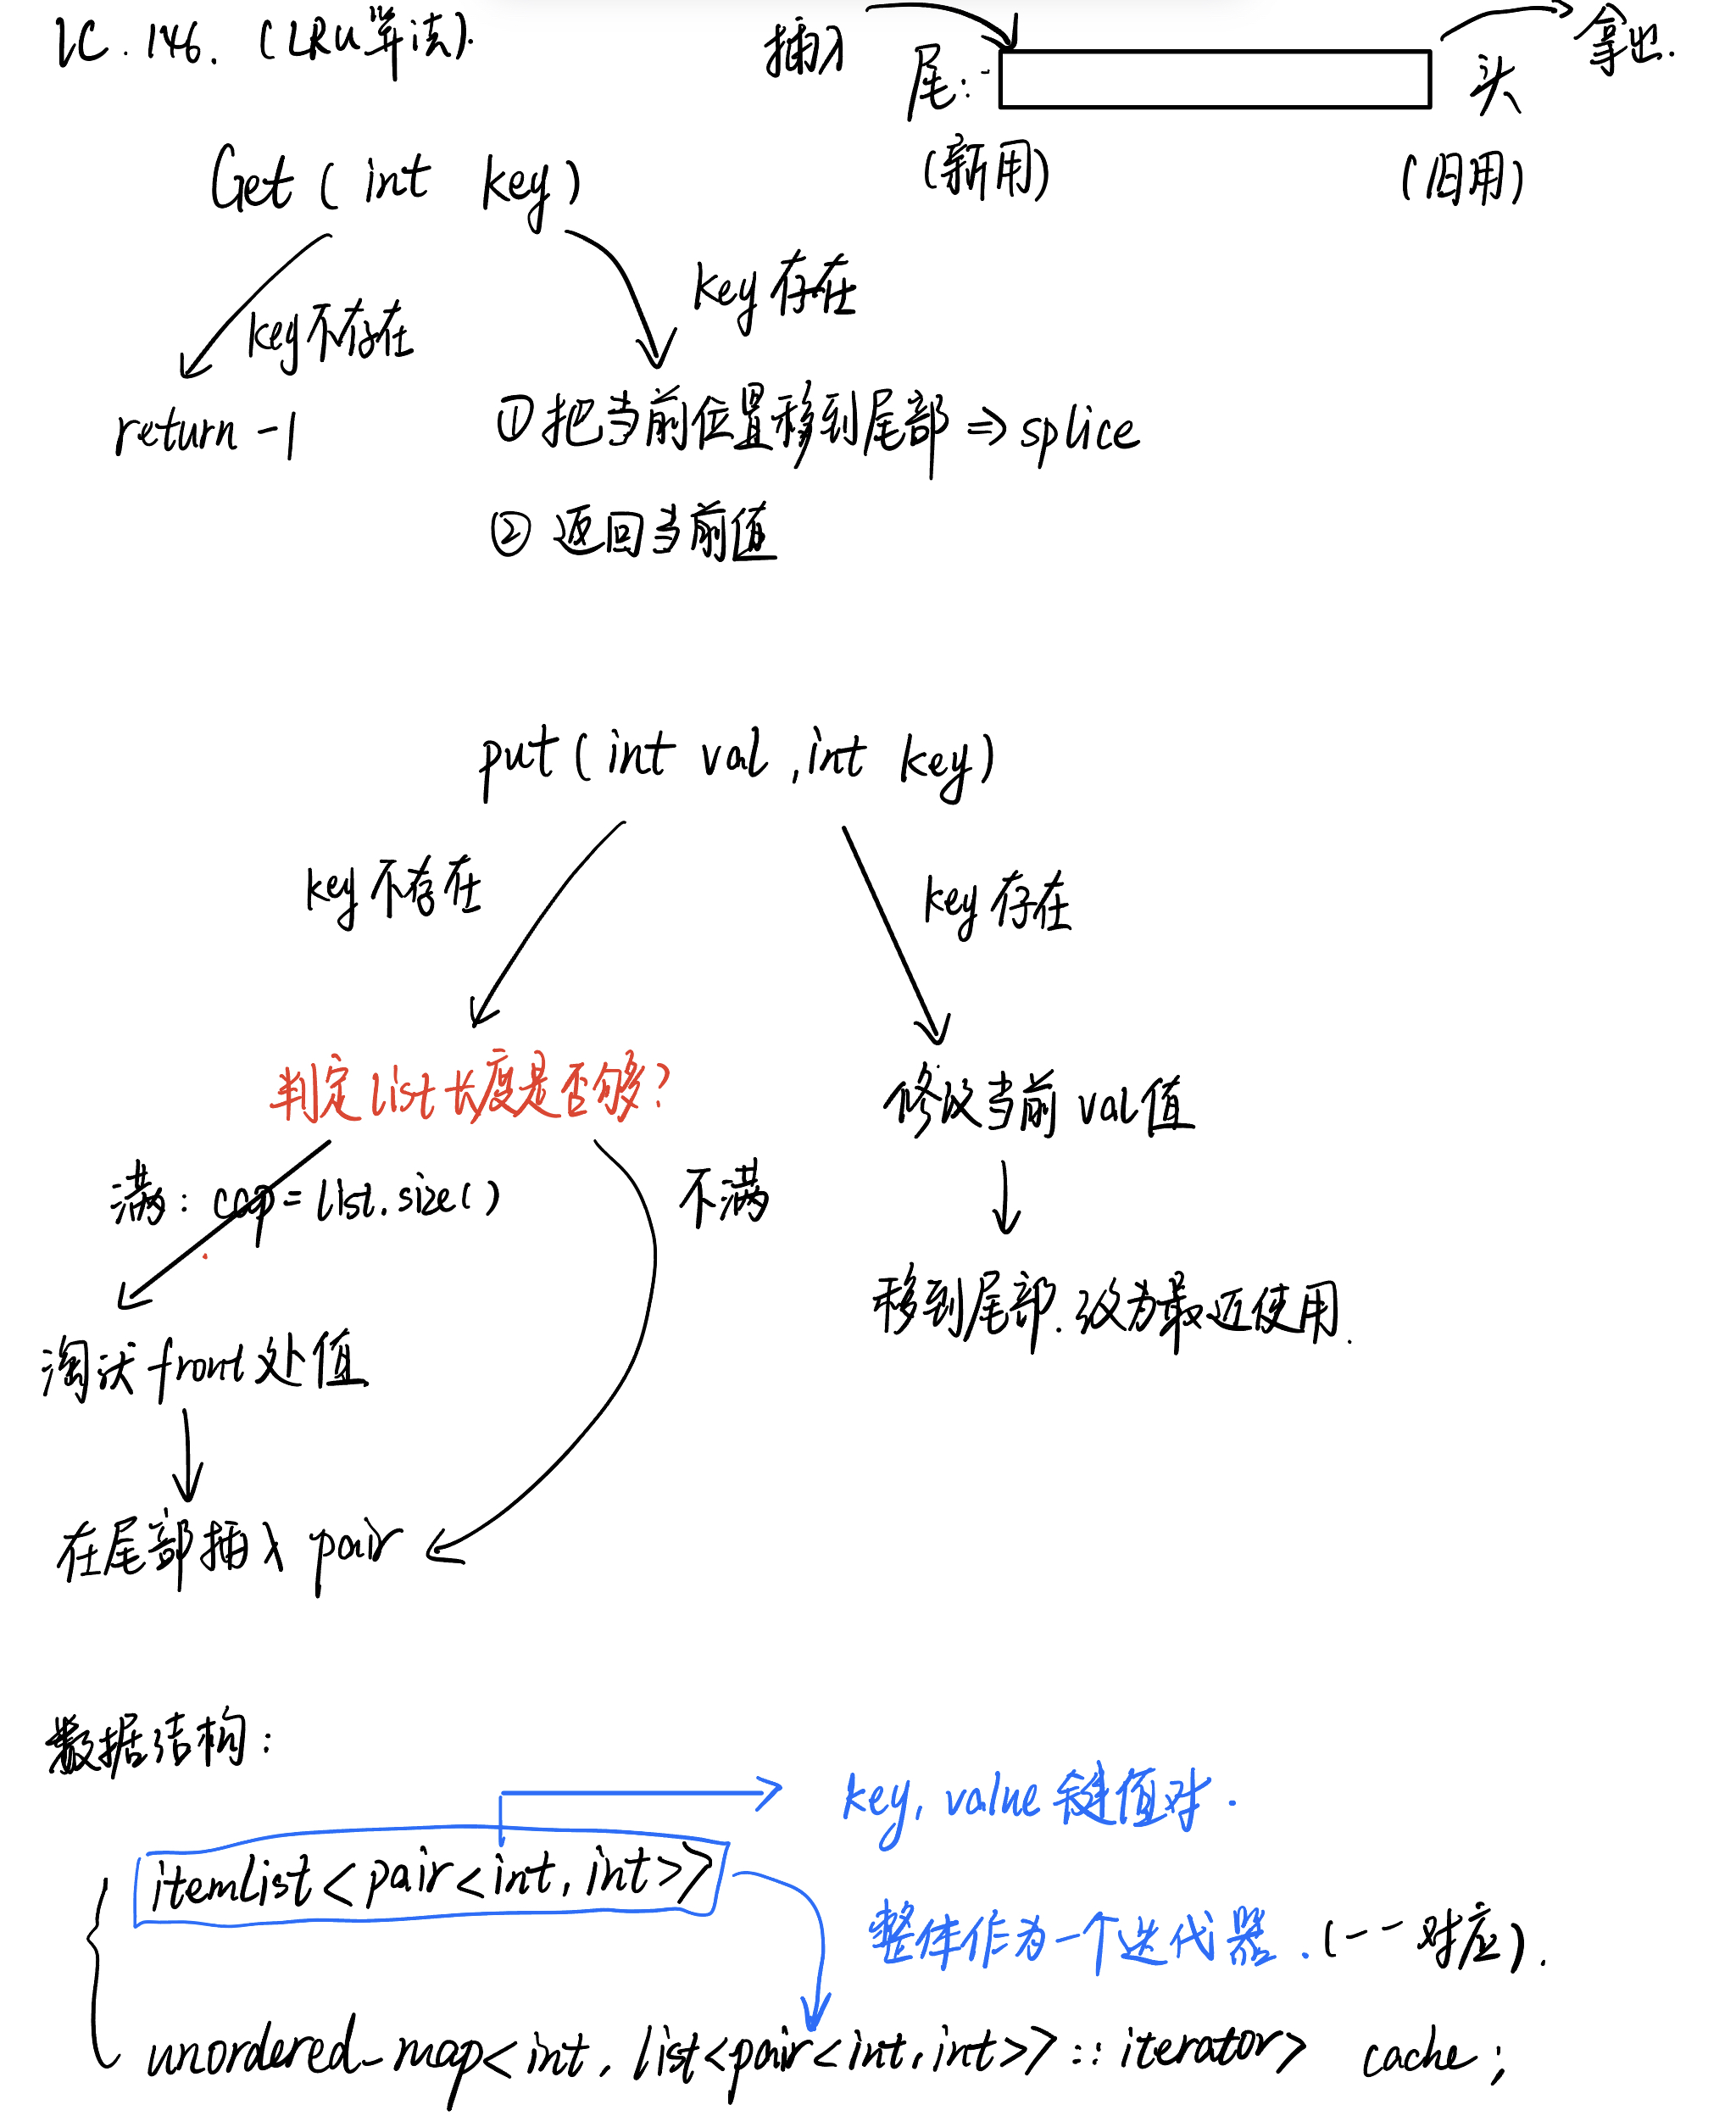 LC.146. (LRU算法).
插入
尾:
头
拿出.
(新用)
(旧用)
Get ( int key)
key不存在
key存在
return -1
①把当前位置移到尾部 => splice
② 返回当前值
put ( int val , int key)
key不存在
key存在
判定list长度是否够?
修改当前val值
满: cap = list.size()
不满
移到尾部.设为最近使用.
淘汰front处值
在尾部插入pair
数据结构:
key, value 键值对.
itemList<pair<int, int>>
整体作为一个迭代器.(一一对应).
unordered_map<int, list<pair<int, int>>::iterator> cache;